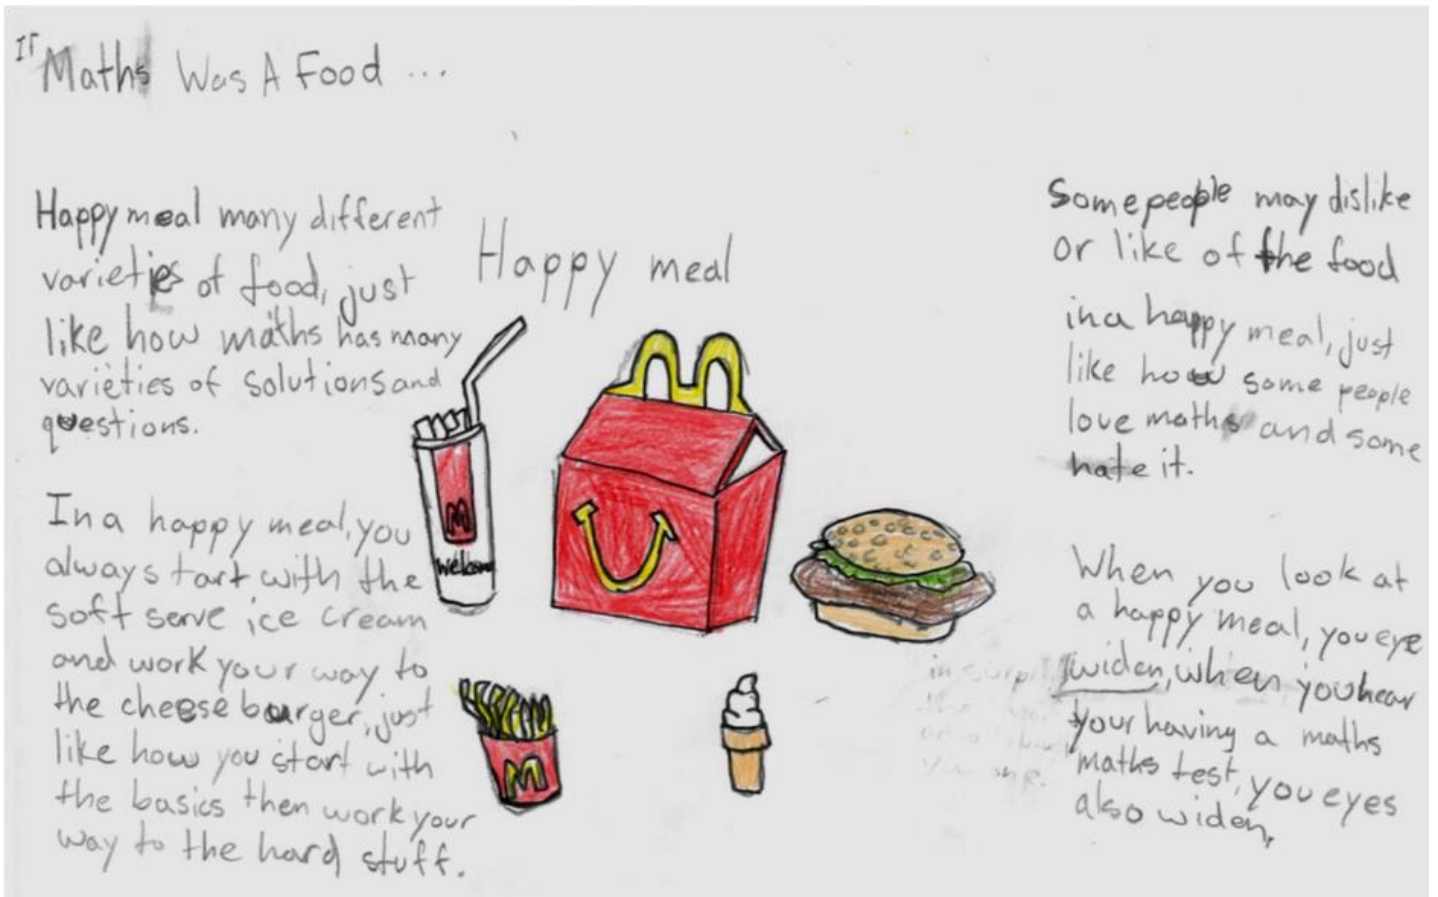 If Maths Was A Food ...
Happy meal many different
varieties of food, just
like how maths has many
varieties of solutions and
questions.
In a happy meal, you
always tart with the
soft serve ice cream
and work your way to
the cheese burger, just
like how you start with
the basics then work your
way to the hard stuff.
Happy meal
M
welcome
M
Some people may dislike
or like of the food
in a happy meal, just
like how some people
love maths and some
hate it.
When you look at
a happy meal, you eye
widen, when you hear
your having a maths
maths test, you eyes
also widen,
in
you